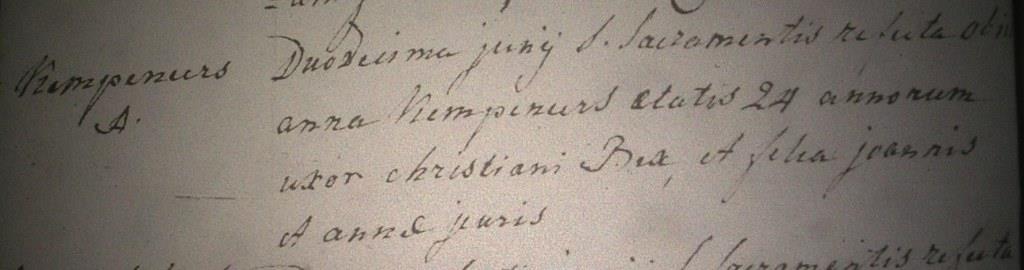 Kempeneers Duodecima junij S. Sacramentis refecta obiit
A. anna Kempeneers ætatis 24 annorum
uxor christiani Bex, et filia joannis
et annæ juris
S. Sacramentis refecta